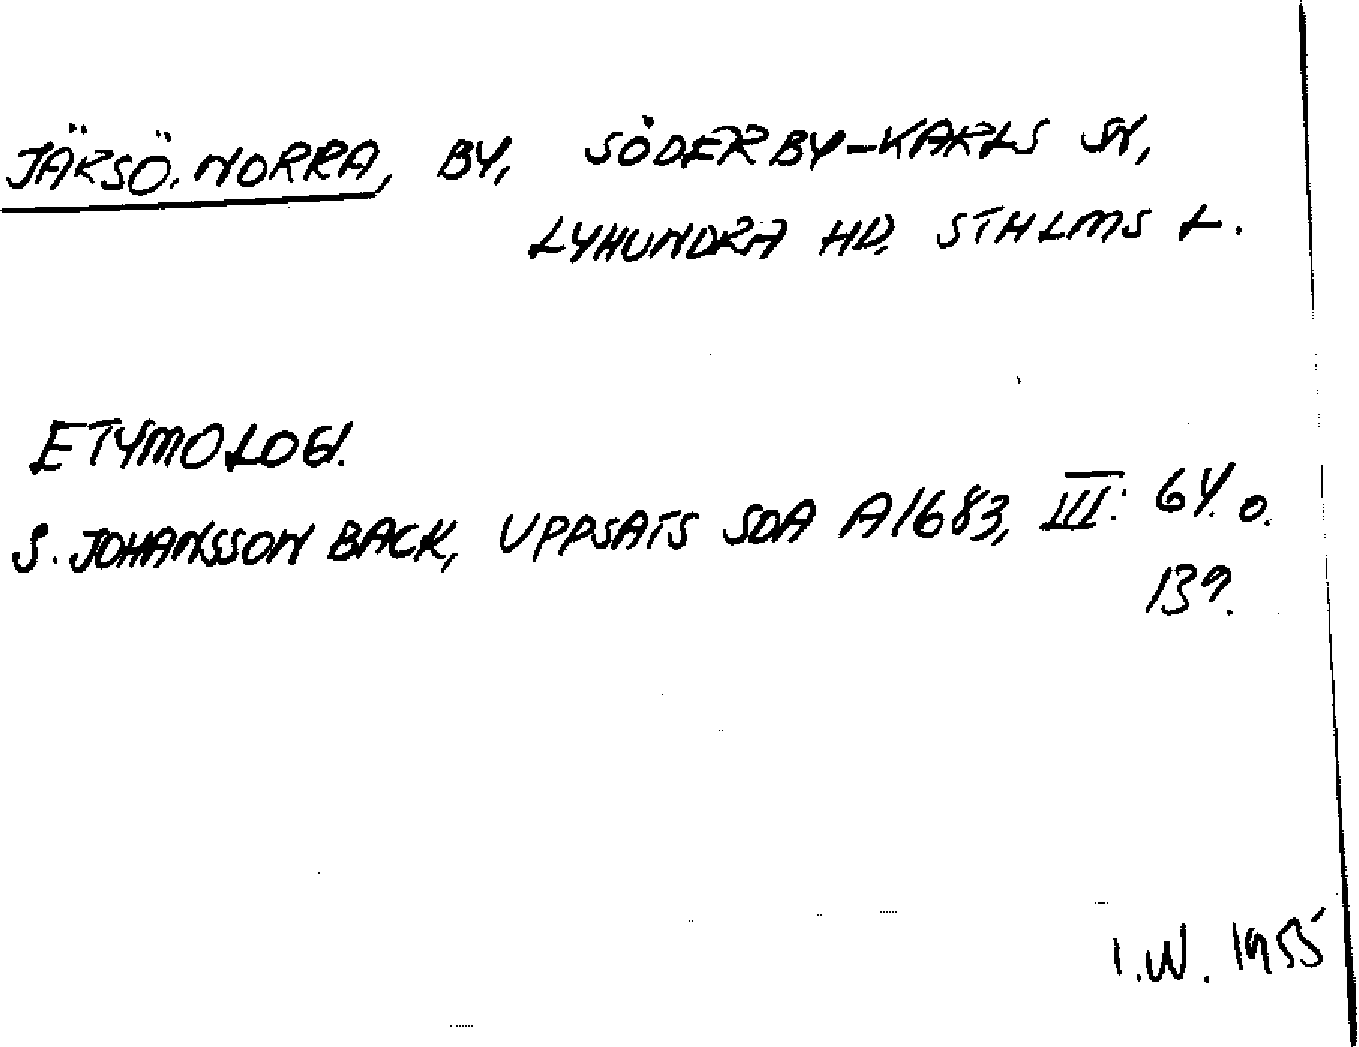 JÄRSÖ, NORRA, BY, SÖDERBY-KARLS SN,
LYHUNDRA HD, STHLMS L.
ETYMOLOGI.
S. JOHANSSON BACK, UPPSATS SOA A1683, III: 64. o.
139.
I.W. 1955